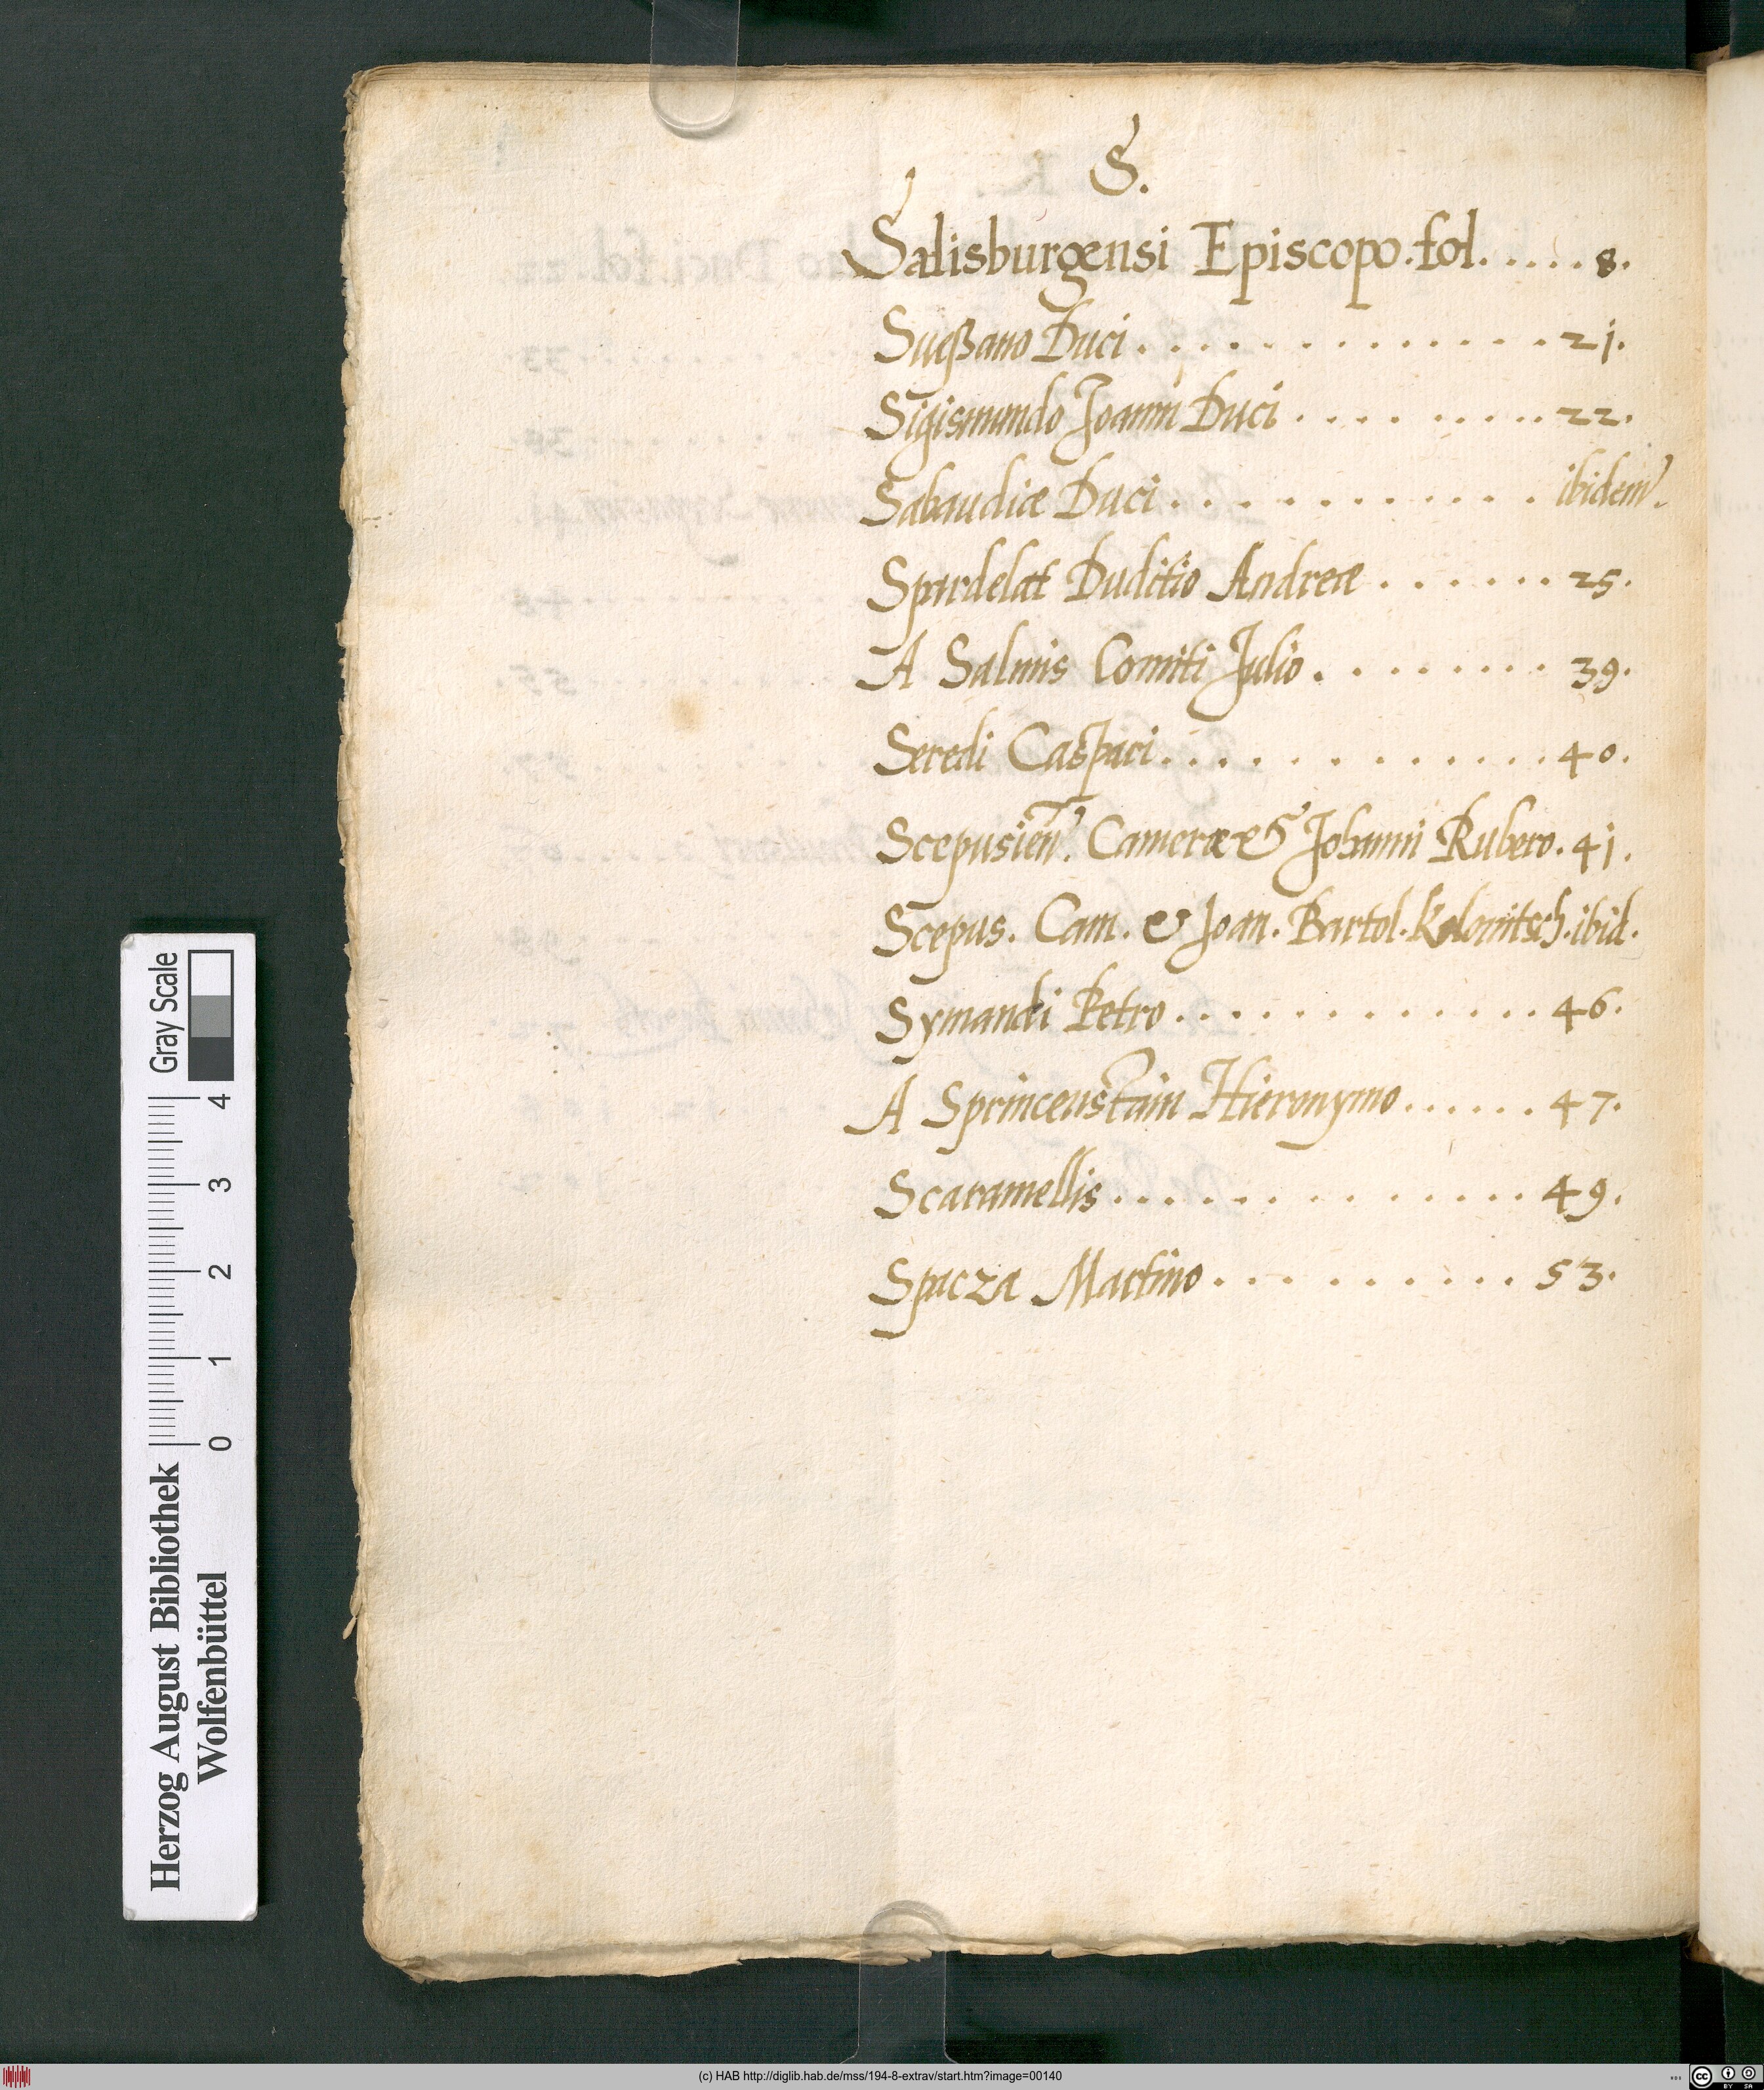 S.
Salisburgensi Episcopo. fol. . . . . 8.
Sueßano Duci . . . . . . . . . . . . . 21.
Sigismundo Joanni Duci . . . . . . . . 22.
Sabaudiæ Duci . . . . . . . . . . . ibidem.
Spirdelat Duditio Andreæ . . . . . . 25.
A Salmis Comiti Julio . . . . . . . . 39.
Seredi Caspari . . . . . . . . . . . . 40.
Scepusien. Cameræ & Johanni Rubero. 41.
Scepus. Cam. & Joan. Bartol. Kolonitsch. ibid.
Symandi Petro . . . . . . . . . . . . 46.
A Sprincenstain Hieronymo . . . . . . 47.
Scaramellis . . . . . . . . . . . . . 49.
Spacza Martino . . . . . . . . . . 53.
Herzog August Bibliothek
Wolfenbüttel
0 1 2 3 4
Gray Scale
(c) HAB http://diglib.hab.de/mss/194-8-extrav/start.htm?image=00140
CC BY SA